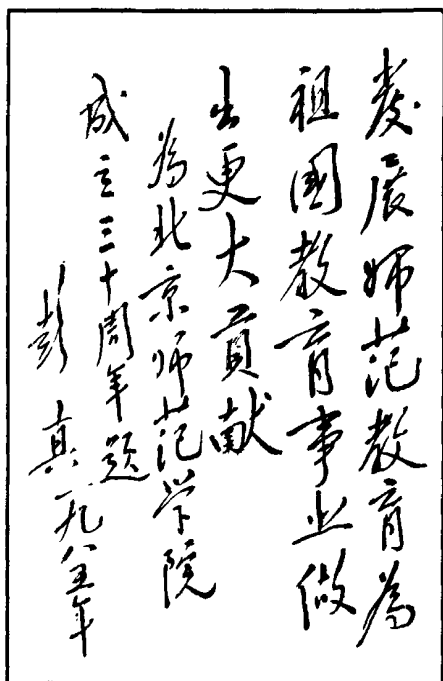 发展师范教育為
祖國教育事业做
出更大贡献
為北京师范学院
成立三十周年题
彭真一九八五年